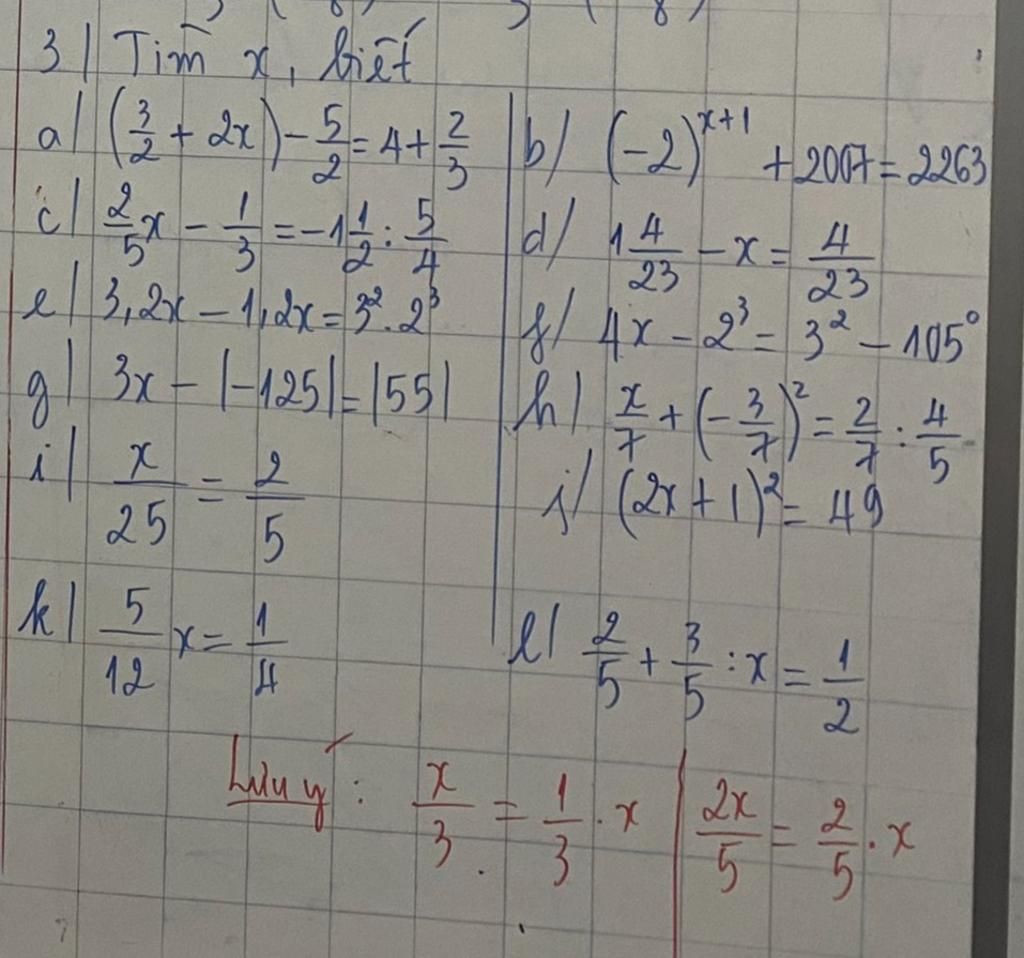 3| Tìm x, biết
a| (3/2 + 2x) - 5/2 = 4 + 2/3
b/ (-2)^(x+1) + 2007 = 2263
c| 2/5 x - 1/3 = -1 1/2 : 5/4
d/ 1 4/23 - x = 4/23
e| 3,2x - 1,2x = 3² . 2³
f/ 4x - 2³ = 3² - 105⁰
g| 3x - |-125| = |55|
h| x/7 + (-3/7)² = 2/7 : 4/5
i| x/25 = 2/5
j/ (2x + 1)² = 49
k| 5/12 x = 1/4
l| 2/5 + 3/5 : x = 1/2
Lưu ý : x/3 = 1/3 . x | 2x/5 = 2/5 . x